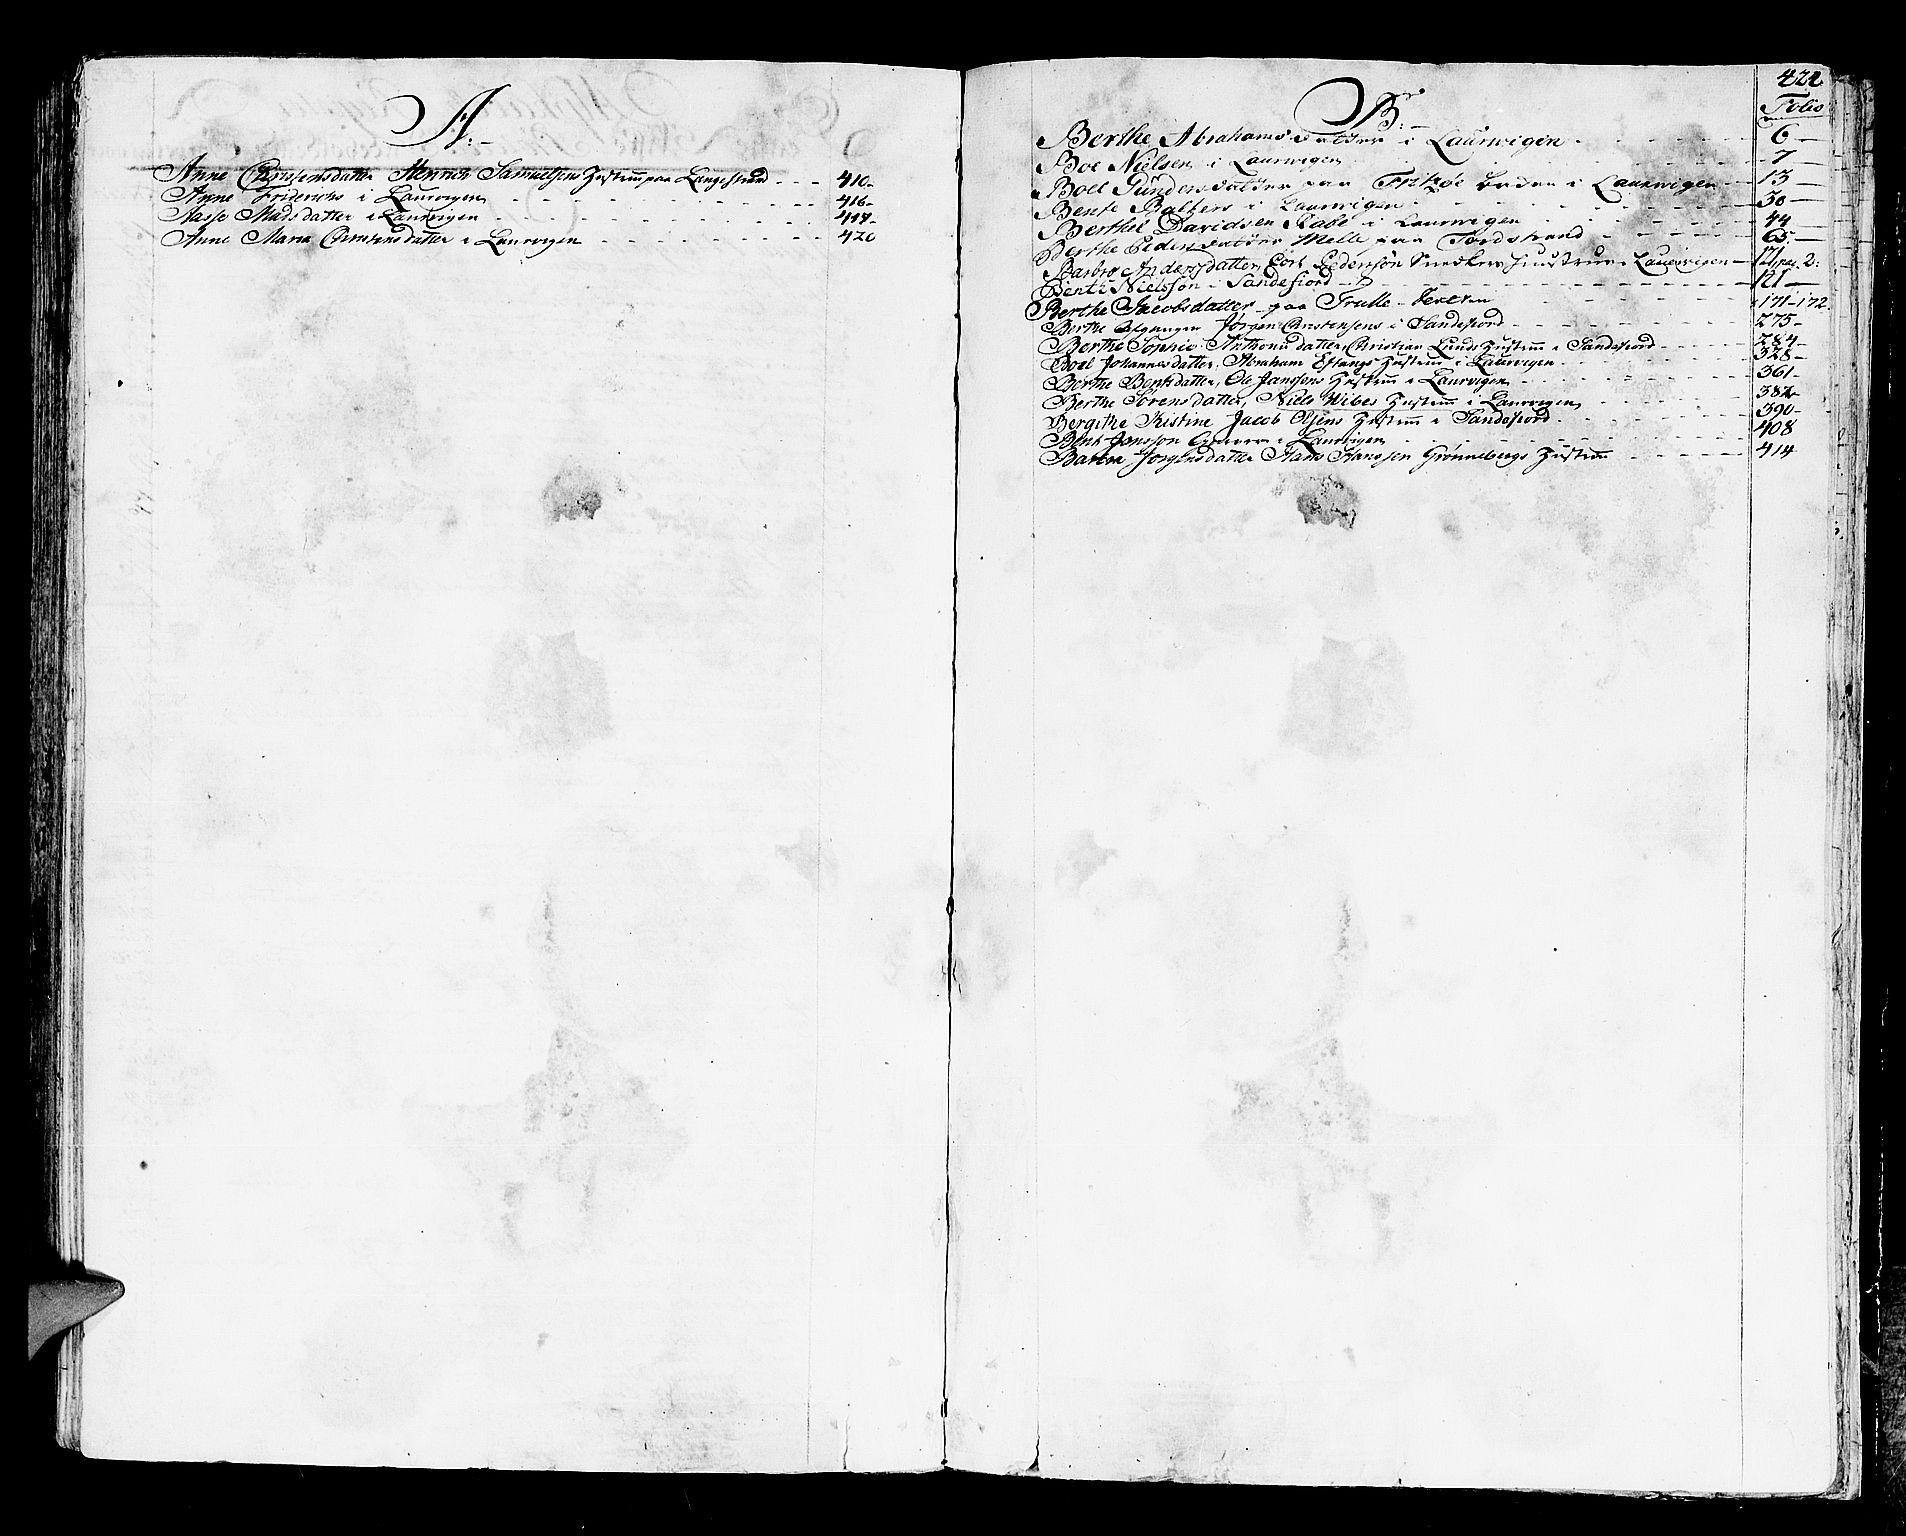 A:-
Anne Christensdatter Henrich Samuelsens Hustrue paa Langestrand - - - 410-
Anne Friderichs i Laurvigen - - - 416-
Aasse Madsdatter i Laurvigen - - - 418-
Anne Maria Christensdatter i Laurvigen - - - 420
B:-
422
Folio
Berthe Abrahams datter i Laurwigen - - - 6 -
Boe Nielsen i Laurwigen - - - 7 -
Boel Gunders datter paa Fritzöe Baden i Laurwigen - 13 -
Bente Balters i Laurwigen - - - 30 -
Berthel Davidsen i Laurwigen - - - 44 -
Berthe Peders datter Melle paa Tordstrand - - - 65 -
Barbro Andersdatter, Pederssøn Snedkers Hustrue i Laurwigen - 121 pag. 2:
Bent Nielssøn - Sandefiord - - - 121 -
Berthe Jacobsdatter - paa Trulle - - - 171-172
Berthe afgangen Jørgen Christensens i Sandefiord - - - 275-
Berthe Sophie Anthonisdatter, Christian Lunds Hustrue i Sandefiord - - - 284-
Boel Johannesdatter, Abraham Hustrue i Laurvigen - - - 328-
Berthe Bentsdatter, Ole Jansens Hustrue i Laurvigen - - - 361-
Berthe Sørensdatter, Niels Wibes Hustrue i Laurvigen - - - 382-
Bergithe Kristine Jacob Olsens Hustrue i Sandefiord - - - 390-
Bent Jansson i Laurvigen - - - 408
Barbra Jørgensdatter Hans Hanssen Grønnebergs Hustrue - - - 414